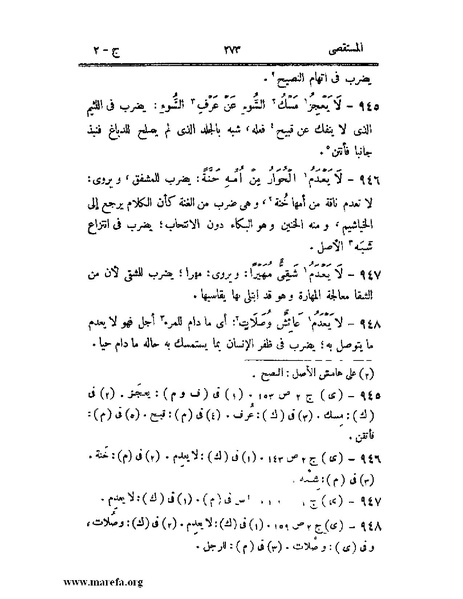 المستقصى ٢٧٣ ج - ٢
يضرب فى اتهام النصيح ٢.
٩٤٥ - لَا يَعْجِزُ ١ مَسْكُ ٢ السُّوءِ عَنْ عَرْفِ ٣ السُّوءِ: يضرب فى اللئيم
الذى لا ينفك عن قبيح ٤ فعله، شبه بالجلد الذى لم يصلح للدباغ فنبذ
جانبا فأنتن ٥.
٩٤٦ - لَا يَعْدَمُ ١ الْحُوَارُ مِنْ أُمِّهِ حَنَّةً: يضرب للمشفق، ويروى:
لا تعدم ناقة من أمها خُنة ٢، وهى ضرب من الغنة كأن الكلام يرجع إلى
الخياشيم، و منه الخنين و هو البكاء دون الانتحاب؛ يضرب فى انتزاع
شَبَه ٣ الأصل.
٩٤٧ - لَا يَعْدَمُ ١ شَقِىٌّ مُهَيْرًا: ويروى: مهرا؛ يضرب للشقى لأن من
الشقا معالجة المهارة و هو قد ابتلى بها يقاسيها.
٩٤٨ - لَا يَعْدَمُ ١ عَائِشٌ وُصَلَاتٍ ٢: أى ما دام للمرء ٣ أجل فهو لا يعدم
ما يتوصل به؛ يضرب فى ظفر الإنسان بما يستمسك به حاله ما دام حيا.
(٢) على هامش الأصل: النصح.
٩٤٥ - (ى) ج ٢ ص ١٥٣. (١) فى (ف و م): يعجز. (٢) فى
(ك): مِسك. (٣) فى (ك): عُرف. (٤) فى (م): قبح. (٥) فى (م):
فأنتن.
٩٤٦ - (ى) ج ٢ ص ١٤٣. (١) فى (ك): لا يعدِم. (٢) فى (م): خَنة.
(٣) فى (م):
٩٤٧ - (ى) ج فى (م). (١) فى (ك): لا يعدِم.
٩٤٨ - (ى) ج ٢ ص ١٥٩ (١) فى (ك): لا يعدِم. (٢) فى (ك): وصَلات،
و فى (ى): وُصْلات. (٣) فى (م): للرجل.
www.marefa.org